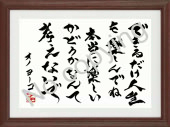 できるだけ人生
を楽しんでね
本当に楽しい
かどうかなんて
考えないで
オノ・ヨーコ